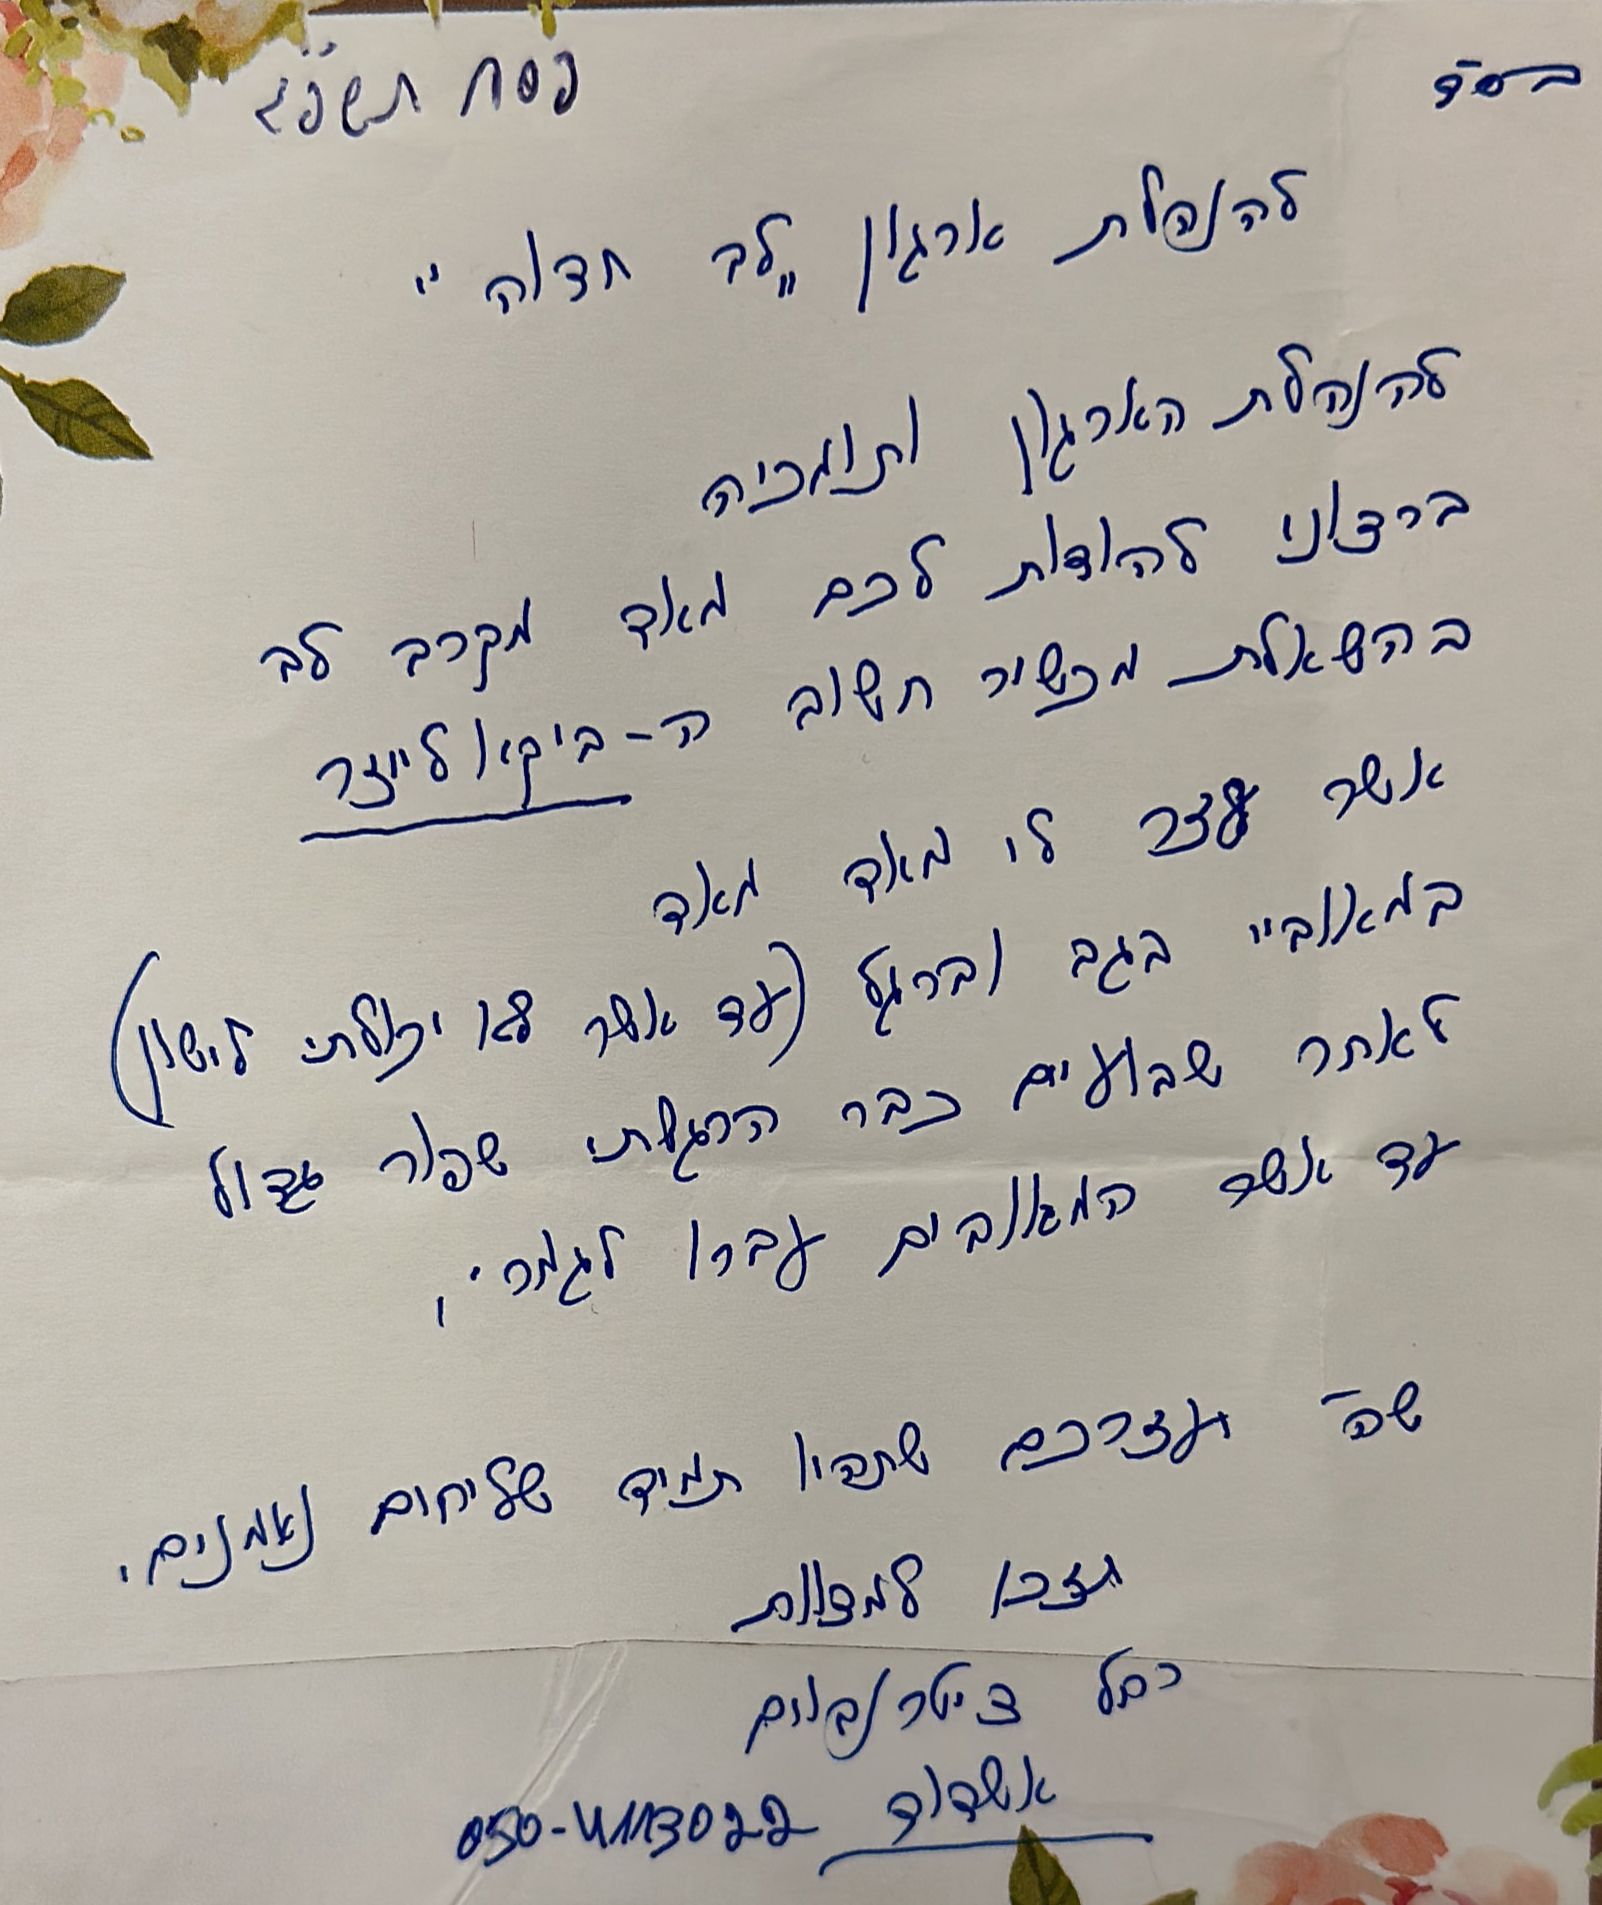 בס"ד
פסח תשפ"ג
להנהלת ארגון "לב חדוה"
להנהלת הארגון ותומכיה
ברצוני להודות לכם מאד מקרב לב
בהשאלת מכשיר חשוב ה-ביקאולייזר
אשר עזר לי מאד מאד
במאוביי בגב וברגל (עד אשר לא יכולתי לישון)
לאחר שבועיים כבר הרגשתי שפור גדול
עד אשר המאובים עברו לגמרי,
שה' יעזרכם שתהיו תמיד שליחים נאמנים.
תזכו למצוות
רחל ציטרנבוים
אשדוד 050-4113022